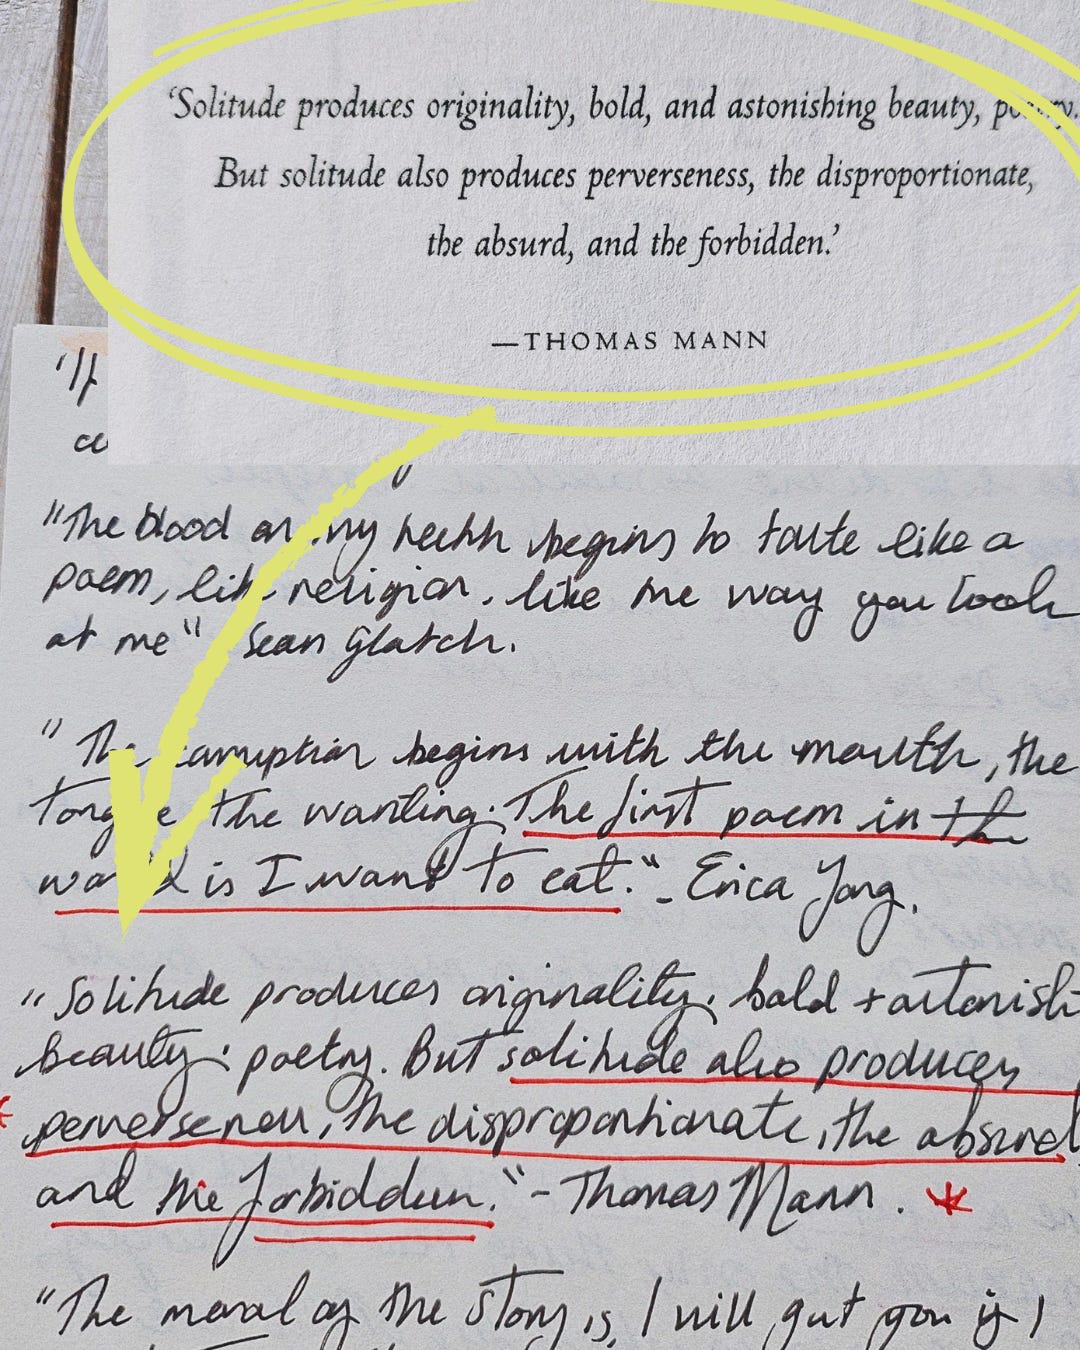 ‘Solitude produces originality, bold, and astonishing beauty, poetry.
But solitude also produces perverseness, the disproportionate,
the absurd, and the forbidden.’
—THOMAS MANN
"The blood on my teeth begins to taste like a
poem, like religion, like the way you look
at me" Sean Glatch.
" The corruption begins with the mouth, the
tongue the wanting. The first poem in the
world is I want to eat." - Erica Jong.
"Solitude produces originality, bold + astonish
beauty, poetry. But solitude also produces
perverseness, the disproportionate, the absurd
and the forbidden." - Thomas Mann.
"The moral of the story is, I will gut you if I